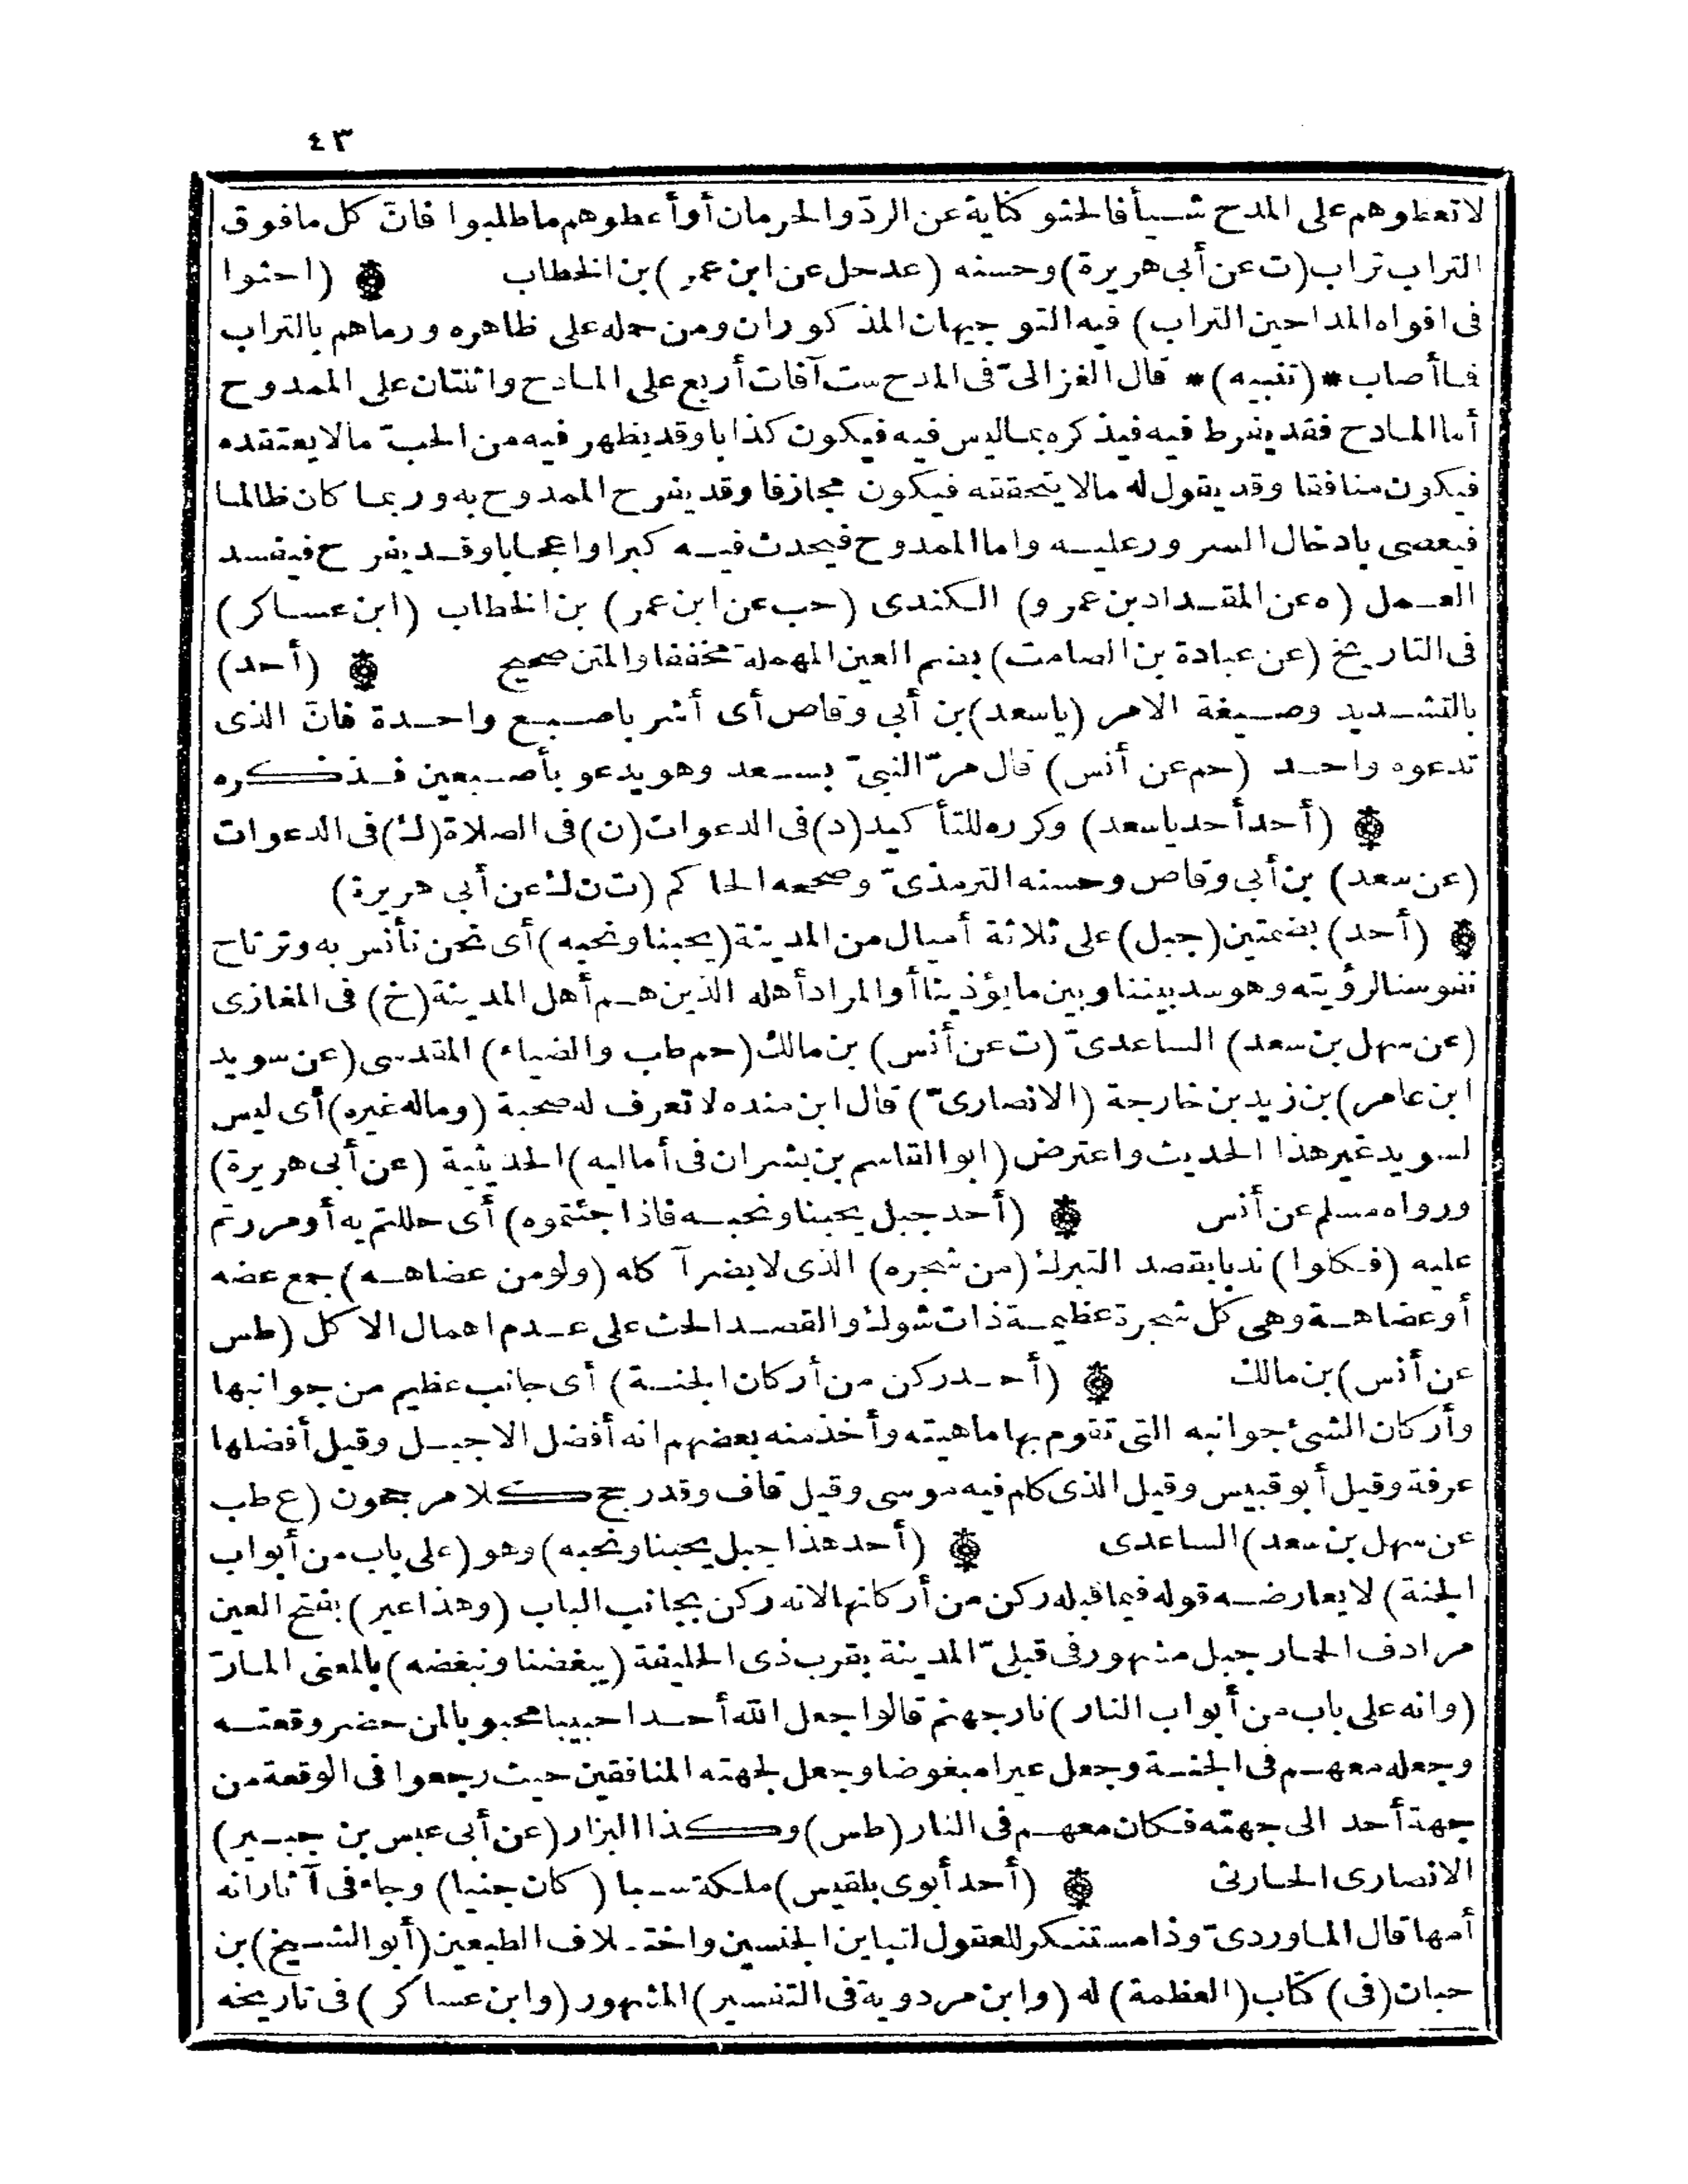 ٤٣
لا تعطوهم على المدح شيأ فالحثو كناية عن الردّ والحرمان أو أعطوهم ما طلبوا فانّ كل ما فوق
التراب تراب (ت عن أبى هريرة) وحسنه (عد حل عن ابن عمر) بن الخطاب (احثوا
فى افواه المداحين التراب) فيه التوجيهان المذكوران ومن حمله على ظاهره ورماهم بالتراب
فما أصاب * (تنبيه) * قال الغزالىّ فى المدح ست آفات أربع على المادح واثنتان على الممدوح
أما المادح فقد يفرط فيه فيذكره بما ليس فيه فيكون كذابا وقد يظهر فيه من الحبّ ما لا يعتقده
فيكون منافقا وقد يقول له ما لا يتحققه فيكون مجازفا وقد يفرح الممدوح به وربما كان ظالما
فيعصى بادخال السرور عليه واما الممدوح فيحدث فيه كبرا واعجابا وقد يفرح فيفسد
العمل (ه عن المقداد بن عمرو) الكندى (حب عن ابن عمر) بن الخطاب (ابن عساكر)
فى التاريخ (عن عبادة بن الصامت) بضم العين المهملة مخففا والمتن صحيح (أحد)
بالتشديد وصيغة الامر (يا سعد) بن أبى وقاص أى أشر باصبع واحدة فانّ الذى
تدعوه واحد (حم عن أنس) قال مرّ النبىّ بسعد وهو يدعو بأصبعين فذكره
(أحد أحد يا سعد) وكرره للتأكيد (د) فى الدعوات (ن) فى الصلاة (ك) فى الدعوات
(عن سعد) بن أبى وقاص وحسنه الترمذىّ وصححه الحاكم (ت ن ك عن أبى هريرة)
(أحد) بضمتين (جبل) على ثلاثة أميال من المدينة (يحبنا ونحبه) أى نحن نأنس به وترتاح
نفوسنا لرؤيته وهو سد بيننا وبين ما يؤذينا أو المراد أهله الذين هم أهل المدينة (خ) فى المغازى
(عن سهل بن سعد) الساعدىّ (ت عن أنس) بن مالك (حم طب والضياء) المقدسى (عن سويد
ابن عامر) بن زيد بن خارجة (الانصارىّ) قال ابن منده لا تعرف له صحبة (وماله غيره) أى ليس
لسويد غير هذا الحديث واعترض (ابو القاسم بن بشران فى أماليه) الحديثية (عن أبى هريرة)
ورواه مسلم عن أنس (أحد جبل يحبنا ونحبه فاذا جئتموه) أى حللتم به أو مررتم
عليه (فكلوا) ندبا بقصد التبرك (من شجره) الذى لا يضر آكله (ولو من عضاهه) جمع عضه
أو عضاهة وهى كل شجرة عظيمة ذات شوك والقصد الحث على عدم اهمال الاكل (طس
عن أنس) بن مالك (أحد ركن من أركان الجنة) أى جانب عظيم من جوانبها
وأركان الشئ جوانبه التى تقوم بها ماهيته وأخذ منه بعضهم انه أفضل الاجبل وقيل أفضلها
عرفة وقيل أبو قبيس وقيل الذى كلم فيه موسى وقيل قاف وقد رجح كلا مرجحون (ع طب
عن سهل بن سعد) الساعدى (أحد هذا جبل يحبنا ونحبه) وهو (على باب من أبواب
الجنة) لا يعارضه قوله فيما قبله ركن من أركانها لانه ركن بجانب الباب (وهذا عير) بفتح العين
مرادف الحمار جبل مشهور فى قبلىّ المدينة بقرب ذى الحليفة (يبغضنا ونبغضه) بالمعنى المارّ
(وانه على باب من أبواب النار) نار جهنم قالوا جعل الله أحدا حبيبا محبوبا لمن حضر وقعته
وجعله معهم فى الجنة وجعل عيرا مبغوضا وجعل لجهته المنافقين حيث رجعوا فى الوقعة من
جهة أحد الى جهته فكان معهم فى النار (طس) وكذا البزار (عن أبى عبس بن جبير)
الانصارى الحارثى (أحد أبوى بلقيس) ملكة سبا (كان جنيا) وجاء فى آثار انه
أمها قال الماوردىّ وذا مستنكر للعقول لتباين الجنسين واختلاف الطبعين (أبو الشيخ) بن
حبان (فى) كتاب (العظمة) له (وابن مردويه فى التفسير) المشهور (وابن عساكر) فى تاريخه